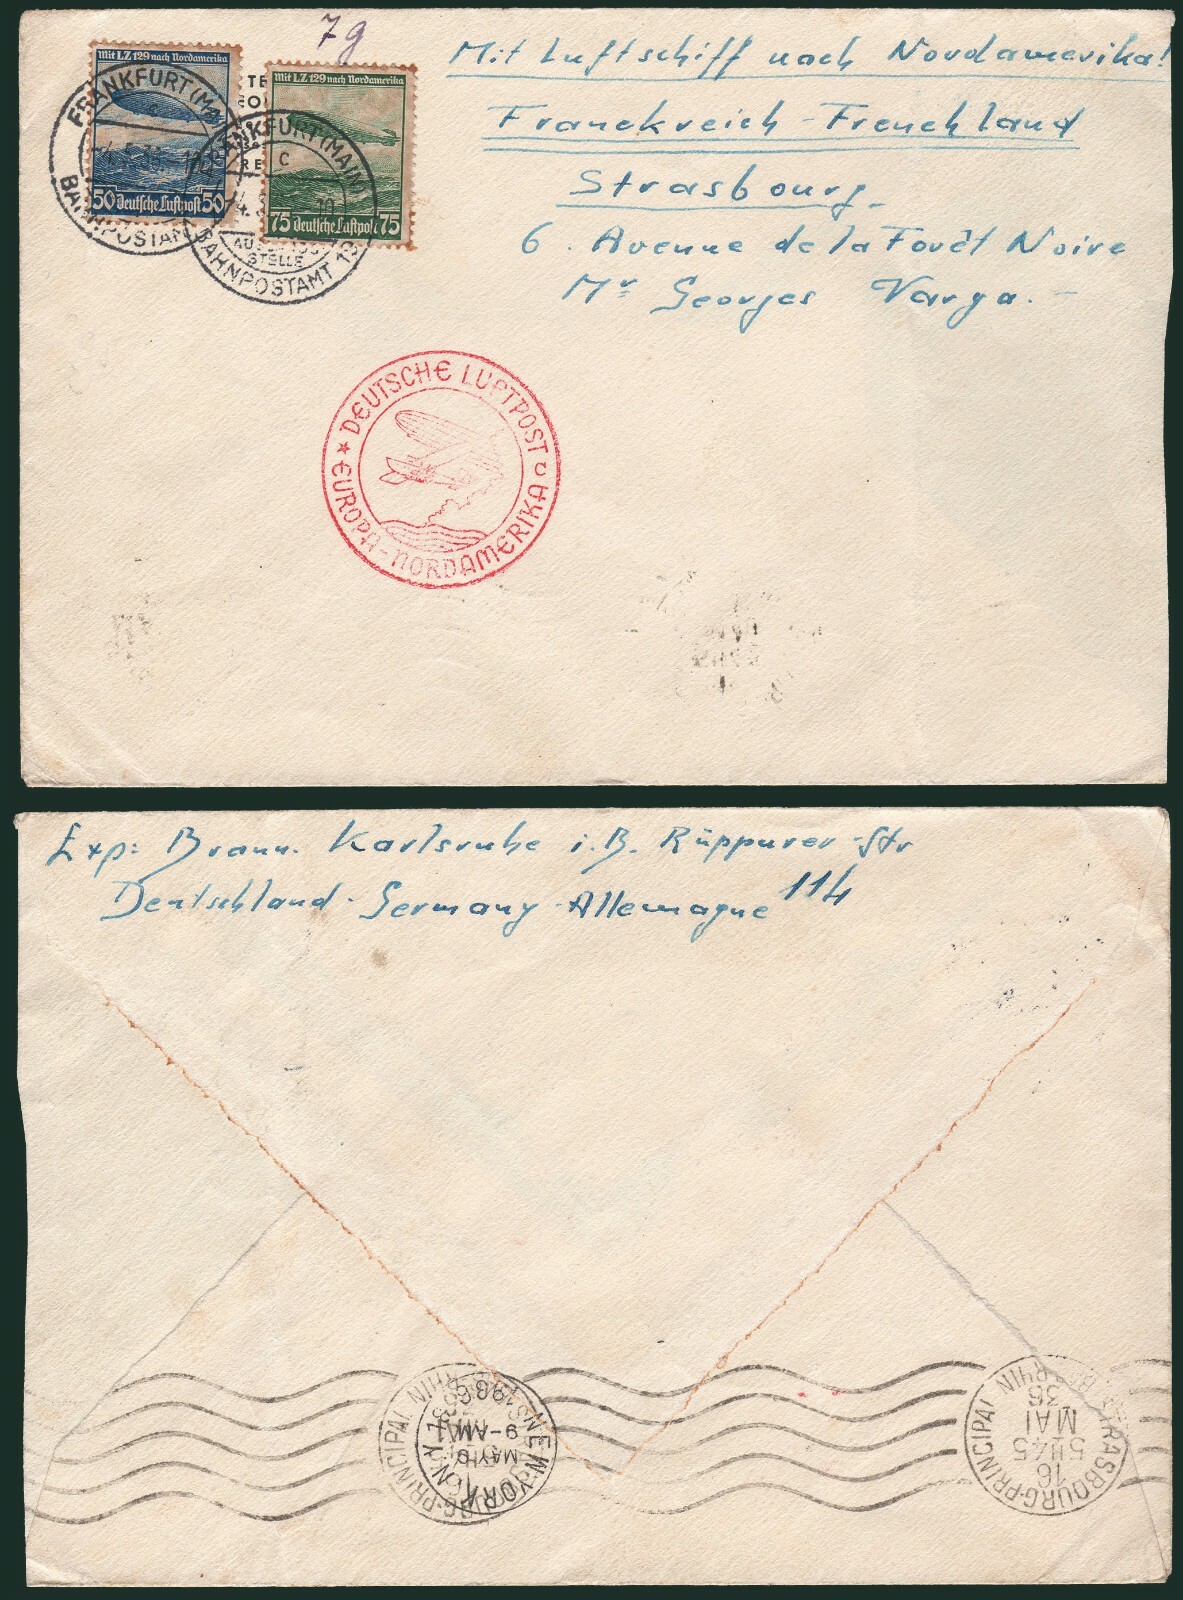 7g
Mit LZ 129 nach Nordamerika
50 Deutsche Luftpost 50
Mit LZ 129 nach Nordamerika
75 Deutsche Luftpost 75
FRANKFURT (MA
BAHNPOSTAM
ANKFURT (MAIN)
C
STELLE
BAHNPOSTAMT 19
Mit Luftschiff nach Nordamerika!
Franckreich - Frenchland
Strasbourg.
6. Avenue de la Forêt Noire
Mr Georges Varga.
DEUTSCHE LUFTPOST
a
EUROPA-NORDAMERIKA
Exp: Braun. Karlsruhe i.B. Rüppurer-Str
114
Deutschland - Germany - Allemagne
NEW YORK, N.Y.
MAY 9
9-AM
1936
STRASBOURG-PRINCIPAL
16
5H45
MAI
36